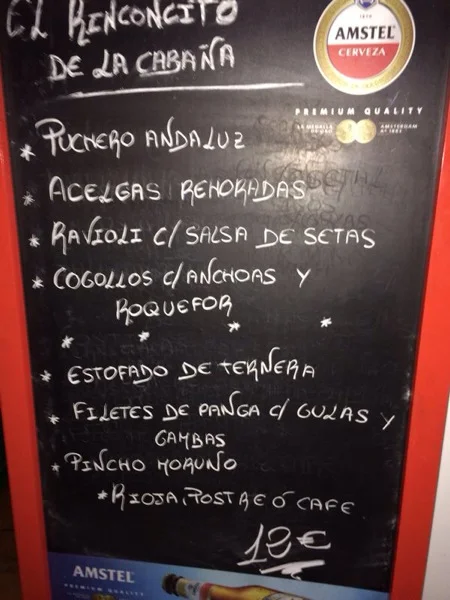 EL RINCONCITO
DE LA CABAÑA
1870
AMSTEL
CERVEZA
PREMIUM QUALITY
* PUCHERO ANDALUZ
* ACELGAS REHOGADAS
* RAVIOLI C/ SALSA DE SETAS
* COGOLLOS C/ANCHOAS Y
ROQUEFOR
* * * *
* ESTOFADO DE TERNERA
* FILETES DE PANGA C/ GULAS Y
GAMBAS
* PINCHO MORUNO
* RIOJA, POSTRE Ó CAFE
12€
AMSTEL
PREMIUM QUALITY